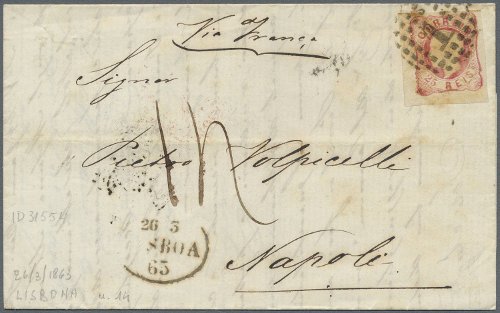 Via di França
CORREIO
1
25 REIS
Signor
Pietro Volpicelli
26 3
SBOA
63
Napoli
ID3155L
26/3/1863
LISBONA n. 14